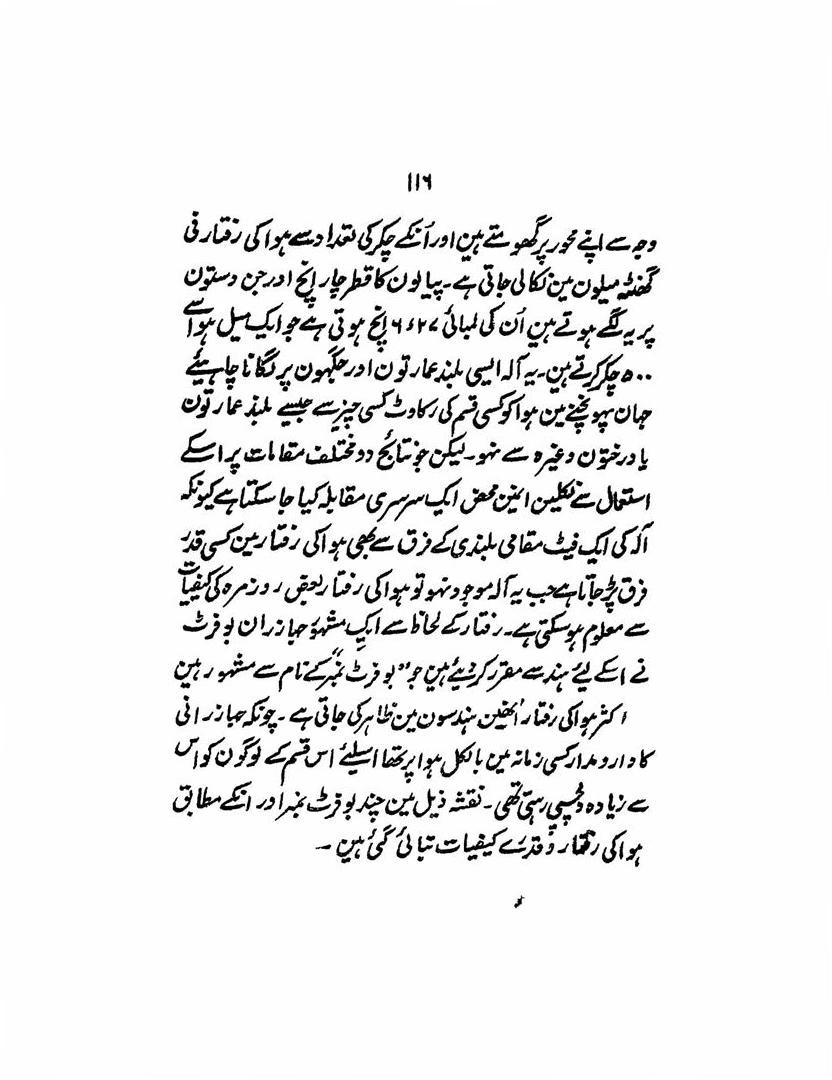 ۱۱۶
وجہ سے اپنے محور پر گھومتے ہین اور اُنکے چکر کی تعداد سے ہوا کی رفتار فی
گھنٹہ میلون مین نکالی جاتی ہے۔ پیالون کا قطر چار انچ اور جن دستون
پر یہ لگے ہوتے ہین اُن کی لمبائی ۶ء۲۷ انچ ہوتی ہے جو ایک میل ہوا سے
۵۰۰ چکر کرتے ہین۔ یہ آلہ ایسی بلند عمارتون اور جگہون پر لگانا چاہیئے
جہان پہونچنے مین ہوا کو کسی قسم کی رکاوٹ کسی چیز سے جیسے بلند عمارتون
یا درختون وغیرہ سے نہو۔ لیکن جو نتائج دو مختلف مقامات پر اسکے
استعمال سے نکلین انمین محض ایک سرسری مقابلہ کیا جا سکتا ہے کیونکہ
آلہ کی ایک فیٹ مقامی بلندی کے فرق سے بھی ہوا کی رفتار مین کسی قدر
فرق پڑ جاتا ہے جب یہ آلہ موجود نہو تو ہوا کی رفتار بعض روزمرہ کی کیفیات
سے معلوم ہوسکتی ہے۔ رفتار کے لحاظ سے ایک مشہور جہازران بوفرٹ
نے اسکے لیئے ہندسے مقرر کردیئے ہین جو "بوفرٹ نمبر" کے نام سے مشہور ہین
اکثر ہوا کی رفتار اُنھین ہندسون مین ظاہر کی جاتی ہے۔ چونکہ جہازرانی
کا دارومدار کسی زمانہ مین بالکل ہوا پر تھا اسلیئے اس قسم کے لوگون کو اس
سے زیادہ دلچسپی رہتی تھی۔ نقشہ ذیل مین چند بوفرٹ نمبر اور انکے مطابق
ہوا کی رفتار و قدرے کیفیات تبائی گئی ہین ۔